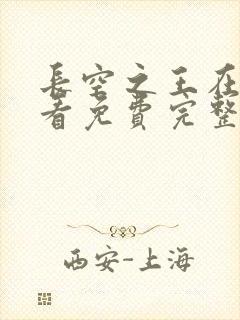 长空之王在
看免费完整
西安-上海